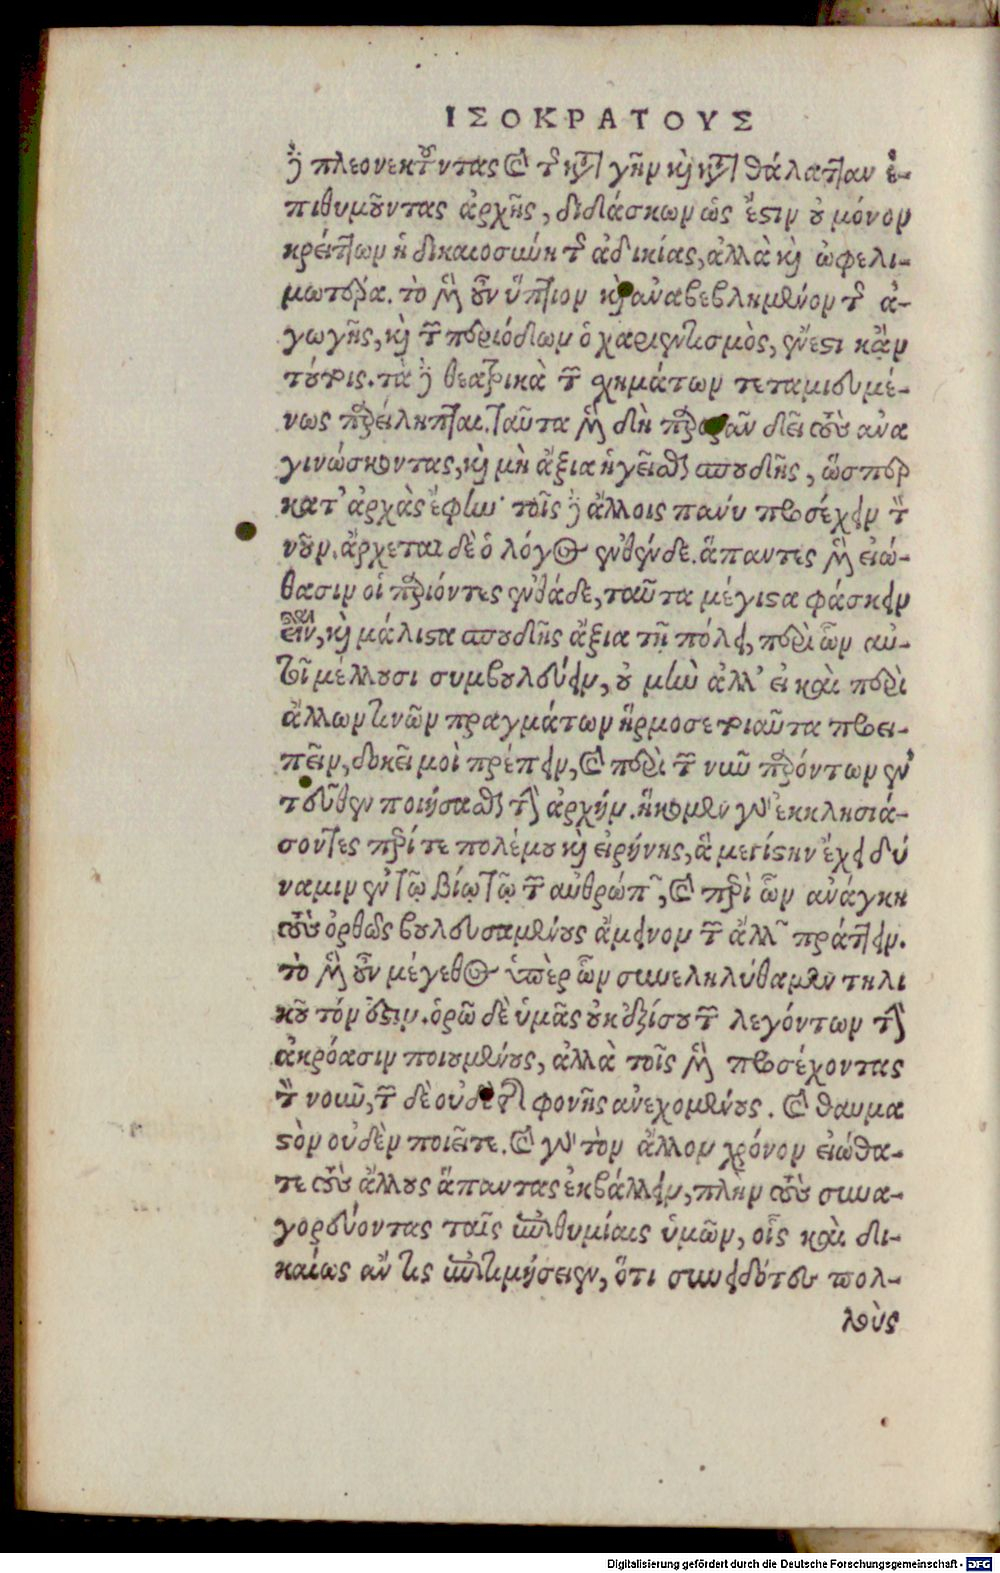 ΙΣΟΚΡΑΤΟΥΣ
δὲ πλεονεκτοῦντας καὶ τῆς κατὰ γῆν καὶ κατὰ θάλατταν ἐ-
πιθυμοῦντας ἀρχῆς, διδάσκων ὡς ἔστιν οὐ μόνον
κρείττων ἡ δικαιοσύνη τῆς ἀδικίας, ἀλλὰ καὶ ὠφελι-
μωτέρα. τὸ μὲν οὖν ὕπτιον καὶ ἀναβεβλημένον τῆς ἀ-
γωγῆς, καὶ τῶν περιόδων ὁ χαριεντισμὸς, ἔνεστι κἂν
τούτοις. τὰ δὲ θεατρικὰ τῶν σχημάτων τεταμιευμέ-
νως παρείληπται. ταῦτα μὲν δὴ παρορᾶν δεῖ τοὺς ἀνα
γινώσκοντας, καὶ μὴ ἄξια ἡγεῖσθαι σπουδῆς, ὥσπερ
κατ' ἀρχὰς ἔφην· τοῖς δὲ ἄλλοις πάνυ προσέχειν τὸν
νοῦν. ἄρχεται δὲ ὁ λόγος ἐνθένδε. ἅπαντες μὲν εἰώ-
θασιν οἱ παριόντες ἐνθάδε, ταῦτα μέγιστα φάσκειν
εἶναι, καὶ μάλιστα σπουδῆς ἄξια τῇ πόλει, περὶ ὧν αὐ-
τοὶ μέλλουσι συμβουλεύειν, οὐ μὴν ἀλλ' εἰ καὶ περὶ
ἄλλων τινῶν πραγμάτων ἥρμοσε τοιαῦτα προει-
πεῖν, δοκεῖ μοὶ πρέπειν, καὶ περὶ τῶν νῦν παρόντων ἐν
τεῦθεν ποιήσασθαι τὴν ἀρχήν. ἥκομεν γὰρ ἐκκλησιά-
σοντες περί τε πολέμου καὶ εἰρήνης, ἃ μεγίστην ἔχει δύ
ναμιν ἐν τῷ βίῳ τῷ τῶν ἀνθρώπων, καὶ περὶ ὧν ἀνάγκη
τοὺς ὀρθῶς βουλευσαμένους ἄμεινον τῶν ἄλλων πράττειν.
τὸ μὲν οὖν μέγεθος ὑπὲρ ὧν συνεληλύθαμεν τηλι
κοῦτόν ἐστιν. ὁρῶ δὲ ὑμᾶς οὐκ ἐξίσου τῶν λεγόντων τὴν
ἀκρόασιν ποιουμένους, ἀλλὰ τοῖς μὲν προσέχοντας
τὸν νοῦν, τῶν δὲ οὐδὲ τῆς φονῆς ἀνεχομένους. καὶ θαυμα
στὸν οὐδὲν ποιεῖτε. καὶ γὰρ τὸν ἄλλον χρόνον εἰώθα-
τε τοὺς ἄλλους ἅπαντας ἐκβάλλειν, πλὴν τοὺς συνα-
γορεύοντας ταῖς ἐπιθυμίαις ὑμῶν, οἷς καὶ δι-
καίως ἄν τις ἐπιτιμήσειεν, ὅτι συνειδότες πολ-
λοὺς
Digitalisierung gefördert durch die Deutsche Forschungsgemeinschaft - DFG